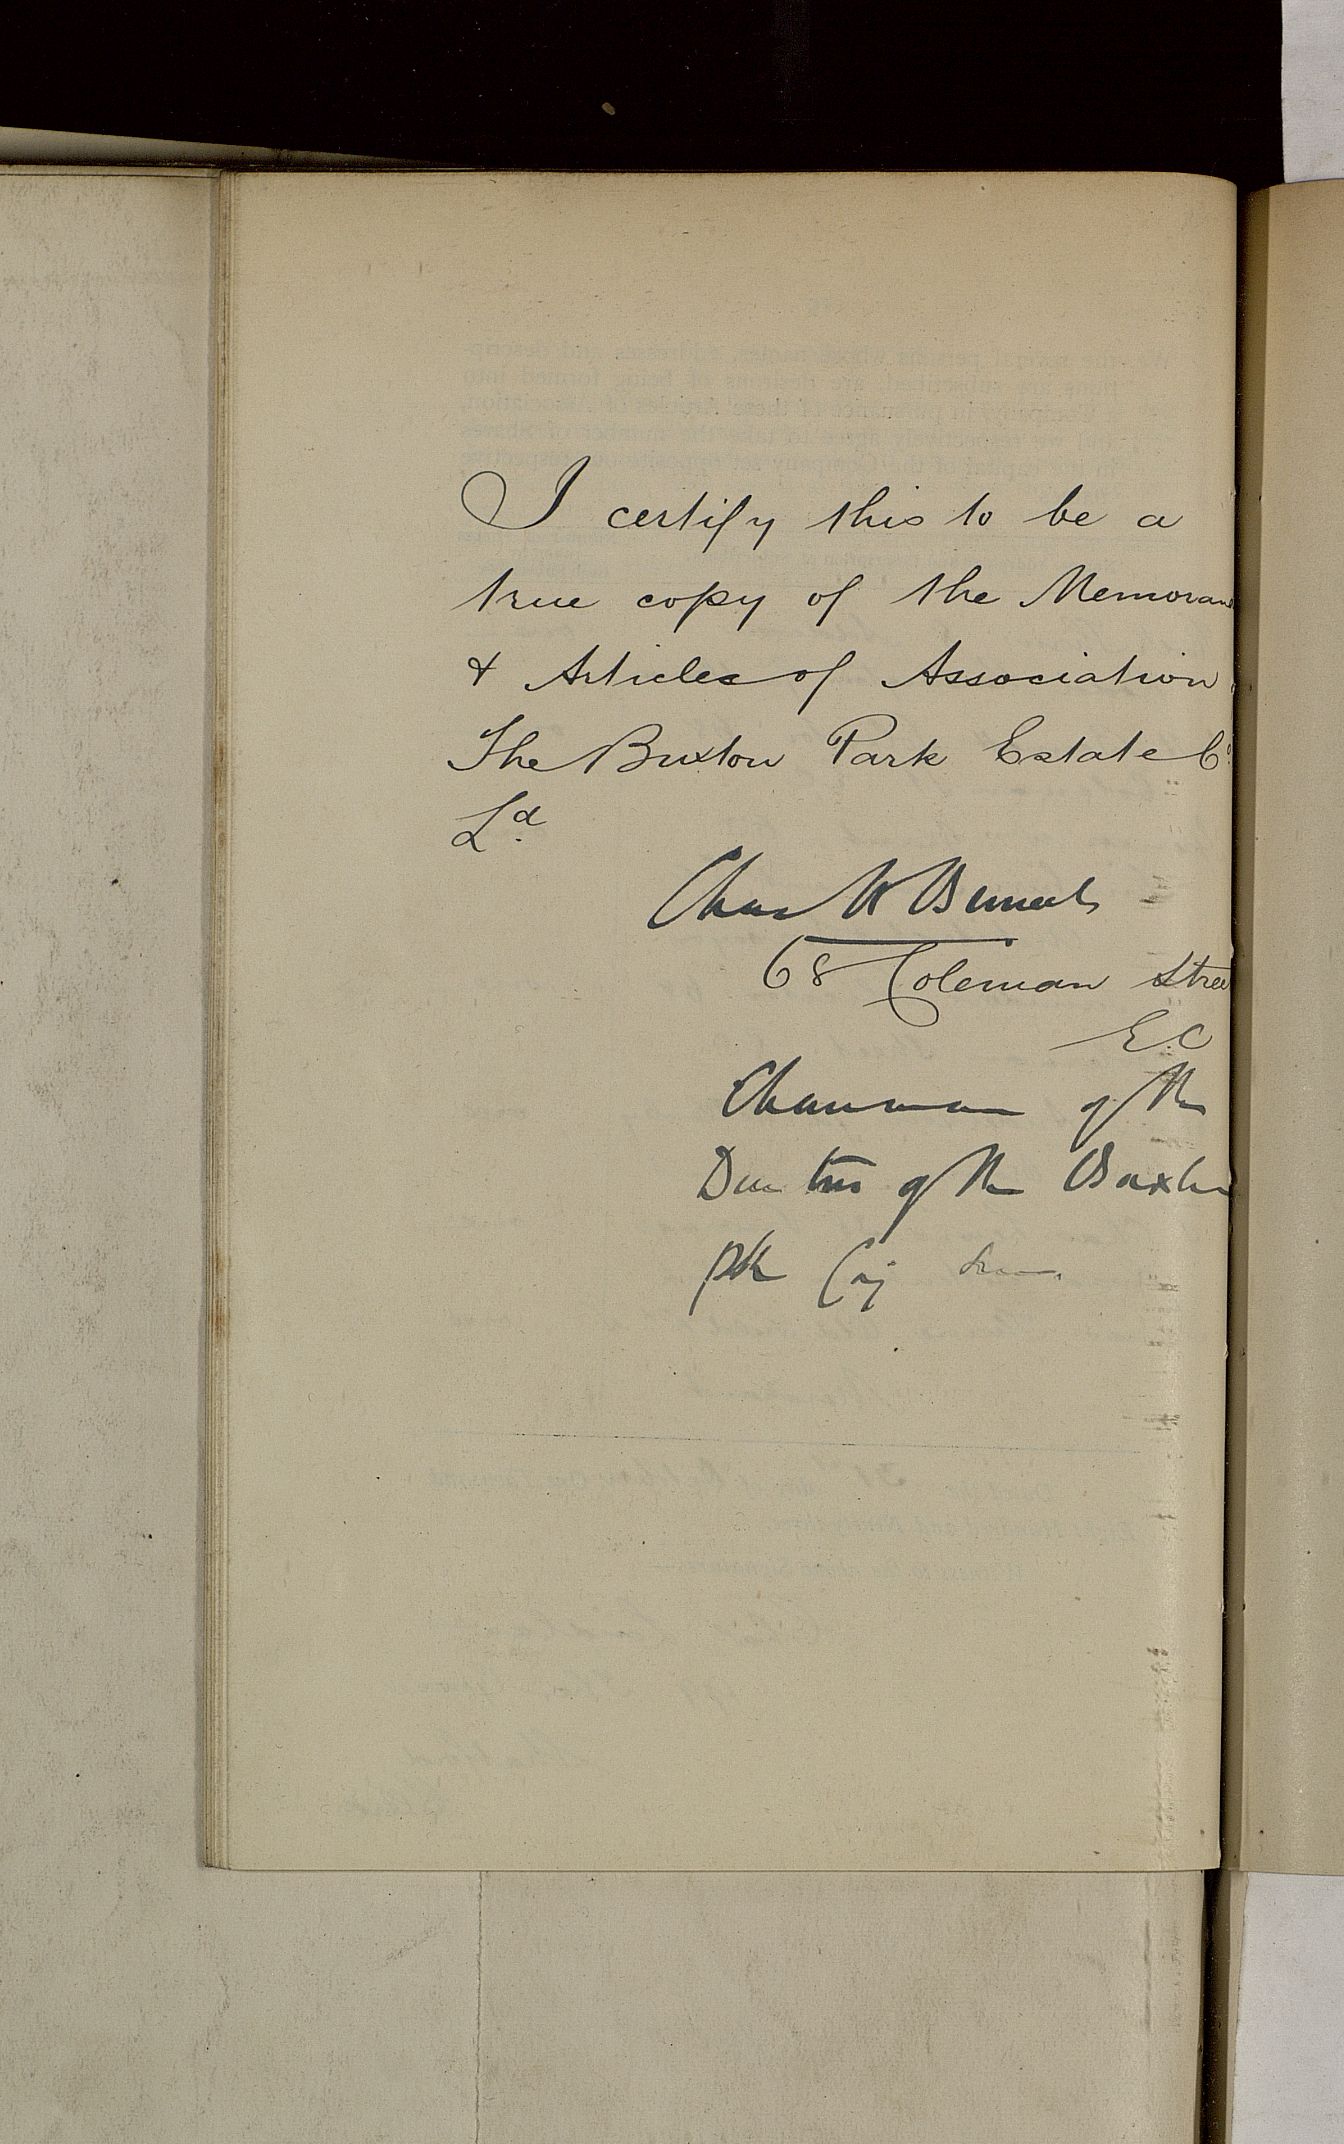 I certify this to be a
true copy of the Memoran
& Articles of Association
The Buxton Park Estate Co
Ld.
Chas W
68 Coleman Stree
E.C
Chairman of the
Directors of the Buxton
Pk Coy